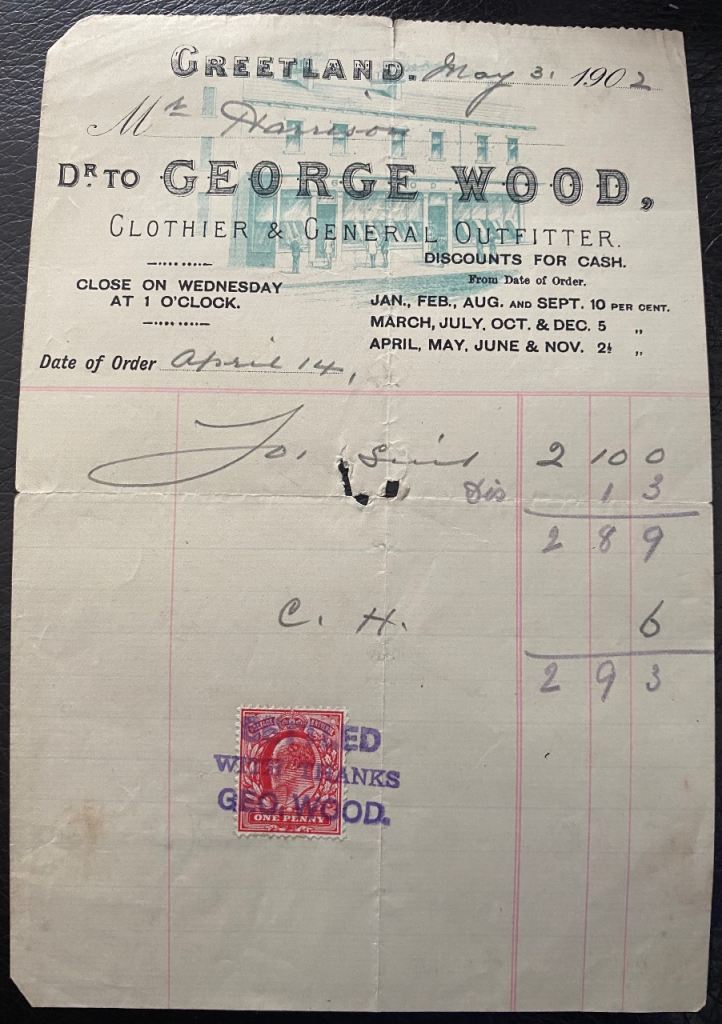 GREETLAND. May 3. 1902
Mr Harrison
DR. TO GEORGE WOOD,
CLOTHIER & GENERAL OUTFITTER.
DISCOUNTS FOR CASH.
From Date of Order.
CLOSE ON WEDNESDAY
AT 1 O'CLOCK.
JAN., FEB., AUG. AND SEPT. 10 PER CENT.
MARCH, JULY, OCT. & DEC. 5 „
APRIL, MAY, JUNE & NOV. 2½ „
Date of Order April 14,
To. Suit 2 10 0
Dis 1 3
2 8 9
C. H. 6
2 9 3
WITH THANKS
GEO. WOOD.
ONE PENNY